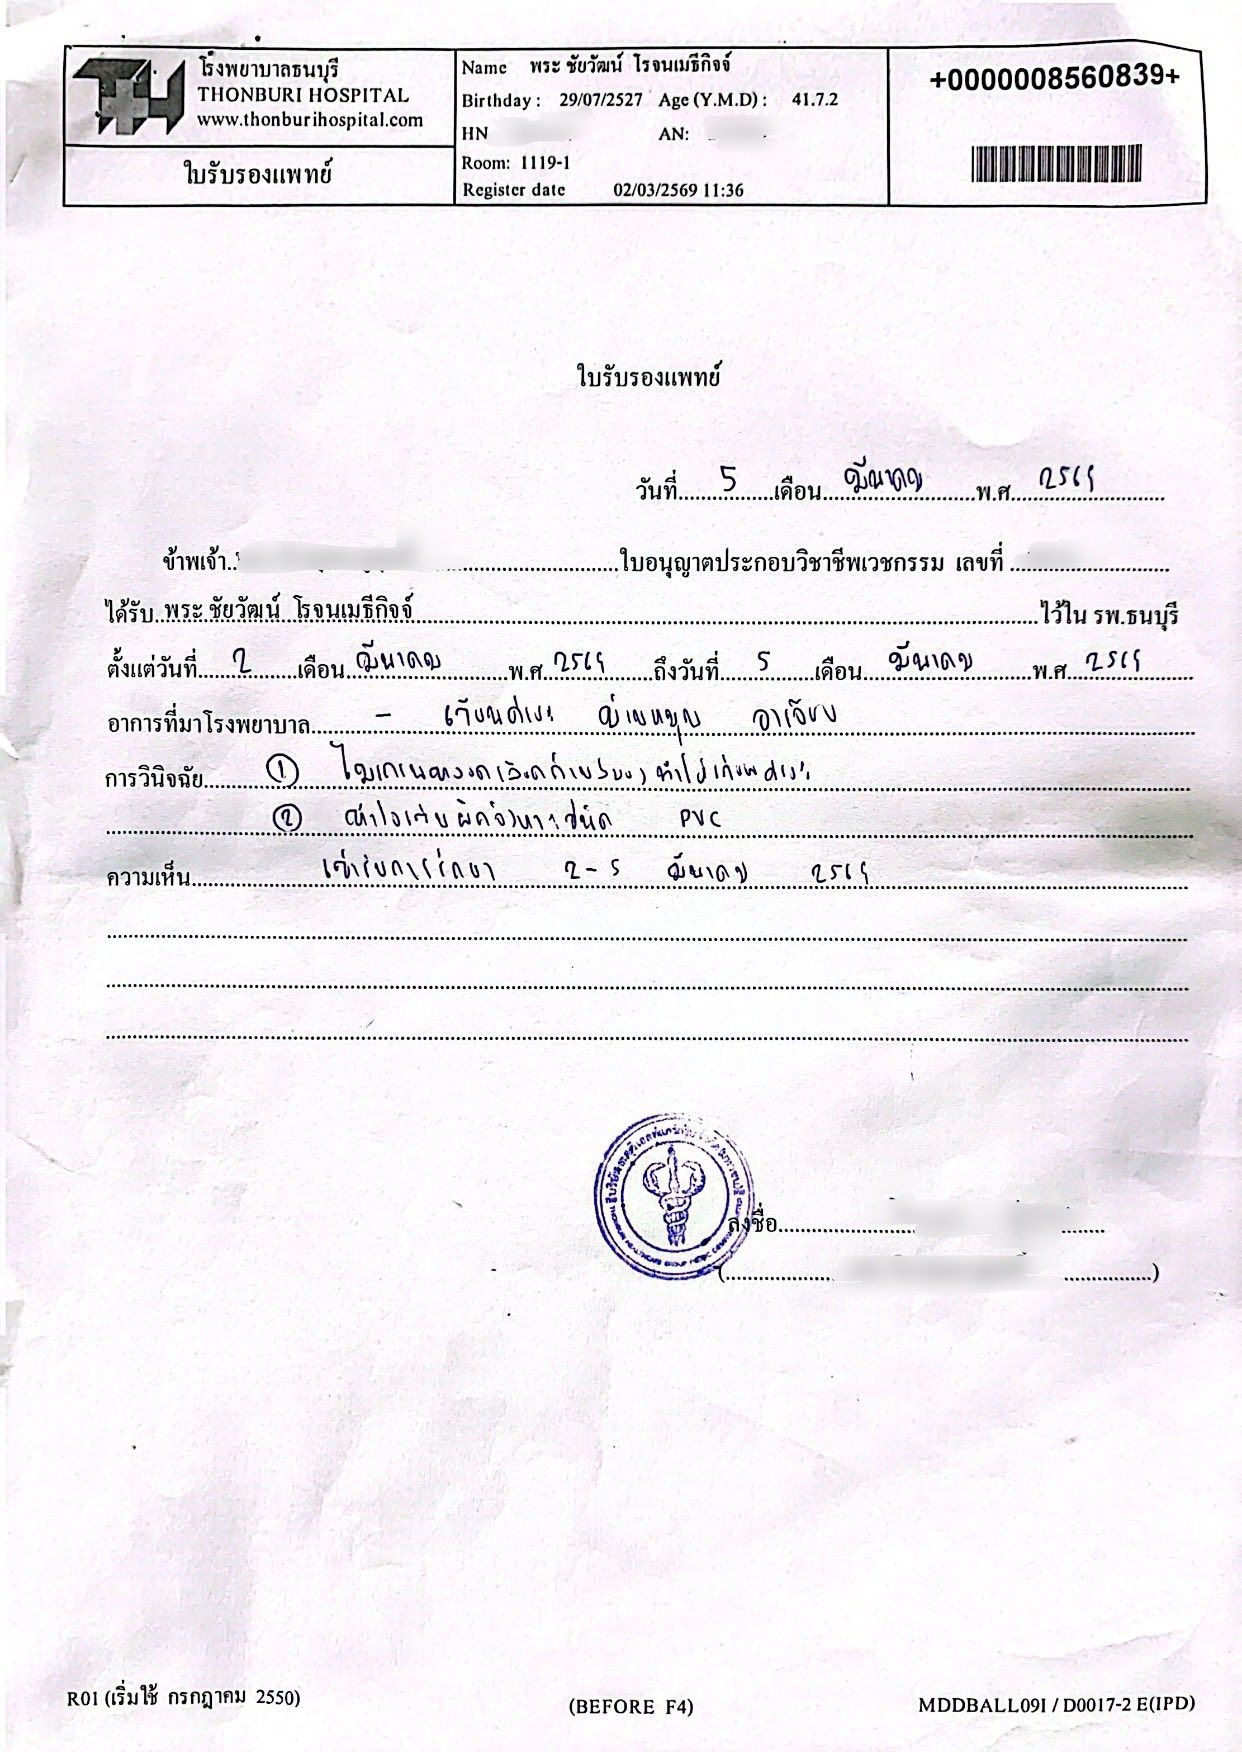 โรงพยาบาลธนบุรี
THONBURI HOSPITAL
www.thonburihospital.com
ใบรับรองแพทย์
Name พระ ชัยวัฒน์ โรจนเมธีกิจจ์
Birthday : 29/07/2527 Age (Y.M.D) : 41.7.2
HN AN:
Room: 1119-1
Register date 02/03/2569 11:36
+0000008560839+
ใบรับรองแพทย์
วันที่ 5 เดือน มีนาคม พ.ศ. 2569
ข้าพเจ้า ใบอนุญาตประกอบวิชาชีพเวชกรรม เลขที่
ได้รับ พระ ชัยวัฒน์ โรจนเมธีกิจจ์ ไว้ใน รพ.ธนบุรี
ตั้งแต่วันที่ 2 เดือน มีนาคม พ.ศ 2569 ถึงวันที่ 5 เดือน มีนาคม พ.ศ. 2569
อาการที่มาโรงพยาบาล - เวียนศีรษะ บ้านหมุน อาเจียน
การวินิจฉัย ① ไมเกรน ทำให้เวียนศีรษะ
② หัวใจเต้นผิดจังหวะชนิด PVC
ความเห็น เข้ารับการรักษา 2-5 มีนาคม 2569
ลงชื่อ
( )
R01 (เริ่มใช้ กรกฎาคม 2550)
(BEFORE F4)
MDDBALL09I / D0017-2 E(IPD)